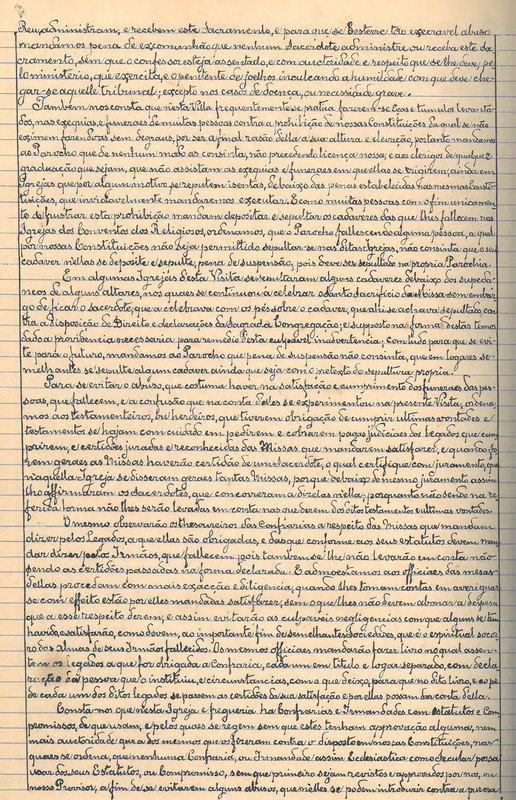 Reu, administram, e recebem este Sacramento, e para que se desterre tão execravel abuso
mandamos pena de excomunhão que nenhum Sacerdote administre ou receba este Sa-
cramento, sem que o confessor esteja assentado, e com auctoridade e respeito que se lhe deve, pe-
lo ministério, que exercita, e o penitente de joelhos inculcando a humildade com que deve che-
gar-se áquelle tribunal; excepto nos casos de doença, ou necessidade grave.
Tambem nos consta que nesta Villa frequentemente se pratica fazerem-se Ecas e tumulo levanta-
dos, nas exequias, e funeraes de muitas pessoas contra a prohibição de nossas Constituições da qual se não
eximem fazendo-as sem degraus, por ser a final rasão della a sua altura e elevção, portanto mandamos
ao Parocho que de nenhum modo as consinta, não precedendo licença nossa; e aos clerigos de qualquer
graduação que sejam, que não assistam as exequias e funeraes em que ellas se erigirem, ainda em
Igrejas que por algum motivo se reputem isentas, debaixo das penas estabelecidas nas mesmas Consti-
tuições, que inviolavelmente mandaremos executar. E como muitas pessoas com o fim unicamen-
te de frustrar esta prohibição mandam depositar e sepultar os cadaveres das que lhes fallecem nas
Igrejas dos Conventos dos Religiosos, ordenamos, que o Parocho fallescendo alguma pessoa, a qual
por nossas Constituições não seja permittido sepultar-se nas ditas Igrejas, não consinta que o seu
cadaver nellas se deposite e sepulte, pena de suspensão, pois deve ser sepultado na propria Parochia.
Em algumas Igrejas desta Visita se sepultaram alguns cadaveres debaixo dos supeda-
neos de alguns altares, nos quaes se continuou a celebrar o Santo sacrificio da Missa sem embar-
go de ficar o sacerdote, que a celebrava com os pés sobre o cadaver, que ali se achava sepultado con-
tra a disposição de Direito e declarações da Sagrada Congregação; e supposto na forma destas temos
dado a providencia necessaria, para remedio desta culpavel inadvertencia; comtudo para que se evi-
te para o futuro, mandamos ao Parocho que pena de suspensão não consinta, que em logares se-
melhantes se sepulte algum cadaver ainda que seja com o pretexto de sepultura propria.
Para se evitar o abuso, que costuma haver na satisfação e cumprimento dos funeraes das pes-
soas, que fallecem, e a confusão que na conta delles se experimentou na presente Visita, ordena-
mos aos testamenteiros, ou herdeiros, que tiverem obrigação de cumprir ultimas vontades e
testamentos se hajam com cuidado em pedirem e cobrarem pagos judiciaes dos legados que cum-
prirem, e certidões juradas e reconhecidas das Missas que mandarem satisfazer, e quando fo-
rem geraes as Missas haverão certidão de um Sacerdote, o qual certifique com juramento, que
n'aquella Igreja se disseram geraes tantas Missas, porque debaixo do mesmo juramento assim
lho affirmaram os sacerdotes, que concorreram a dizel-as n'ella; porquanto não sendo na re-
ferida forma não lhes serão levadas em conta nas que derem dos ditos testamentos e ultimas vontades.
O mesmo observarão os thesoureiros das Confrarias a respeito das Missas que mandam
dizer pelos Legados, a que ellas são obrigadas, e das que conforme aos seus estatutos devem man-
dar dizer pelos Irmãos, que fallecem, pois tambem se lhe não levarão em conta não
sendo as certidões passadas na forma declarada. E admoestamos aos officiaes das mesas
dellas procedam com mais exacção e diligencia, quando lhes tomam contas em averiguar
se com effeito estão por elles mandadas satisfazer, sem o que lhes não devem abonar a despesa
que a esse respeito derem, e assim evitarão as culpaveis negligencias com que alguns se tem
havido, e satisfarão, como devem, ao importante fim de semelhantes sociedades, que é o espiritual socor-
ro das almas de seus Irmãos fallecidos. Os mesmos officiaes mandarão fazer livro no qual assen-
tem os legados a que for obrigada a Confraria, cada um em titulo e logar separado, com decla-
ração da pessoa que o instituiu, e circunstancias, com que o deixou, para que no dito livro, e ao pé
de cada um dos ditos legados se passem as certidões da sua satisfação e por ellas possam dar conta della.
Consta-nos que nesta Igreja e freguezia ha Confrarias e Irmandades com Estatutos e Com-
promissos, de que usam, e pelos quaes se regem sem que estes tenham approvação alguma, nem
mais auctoridade que a dos mesmos que os fizeram contra o disposto em nossas Constituições, nas
quaes se ordena, que nenhuma Confraria, ou Irmandade assim Ecclesiastica como secular possa
usar dos seus Estatutos, ou Compromisso, sem que primeiro sejam revistos e approvados por nós, ou
nosso Provisor, a fim de se evitarem alguns abusos, que n'elles se podem introduzir contra a pureza